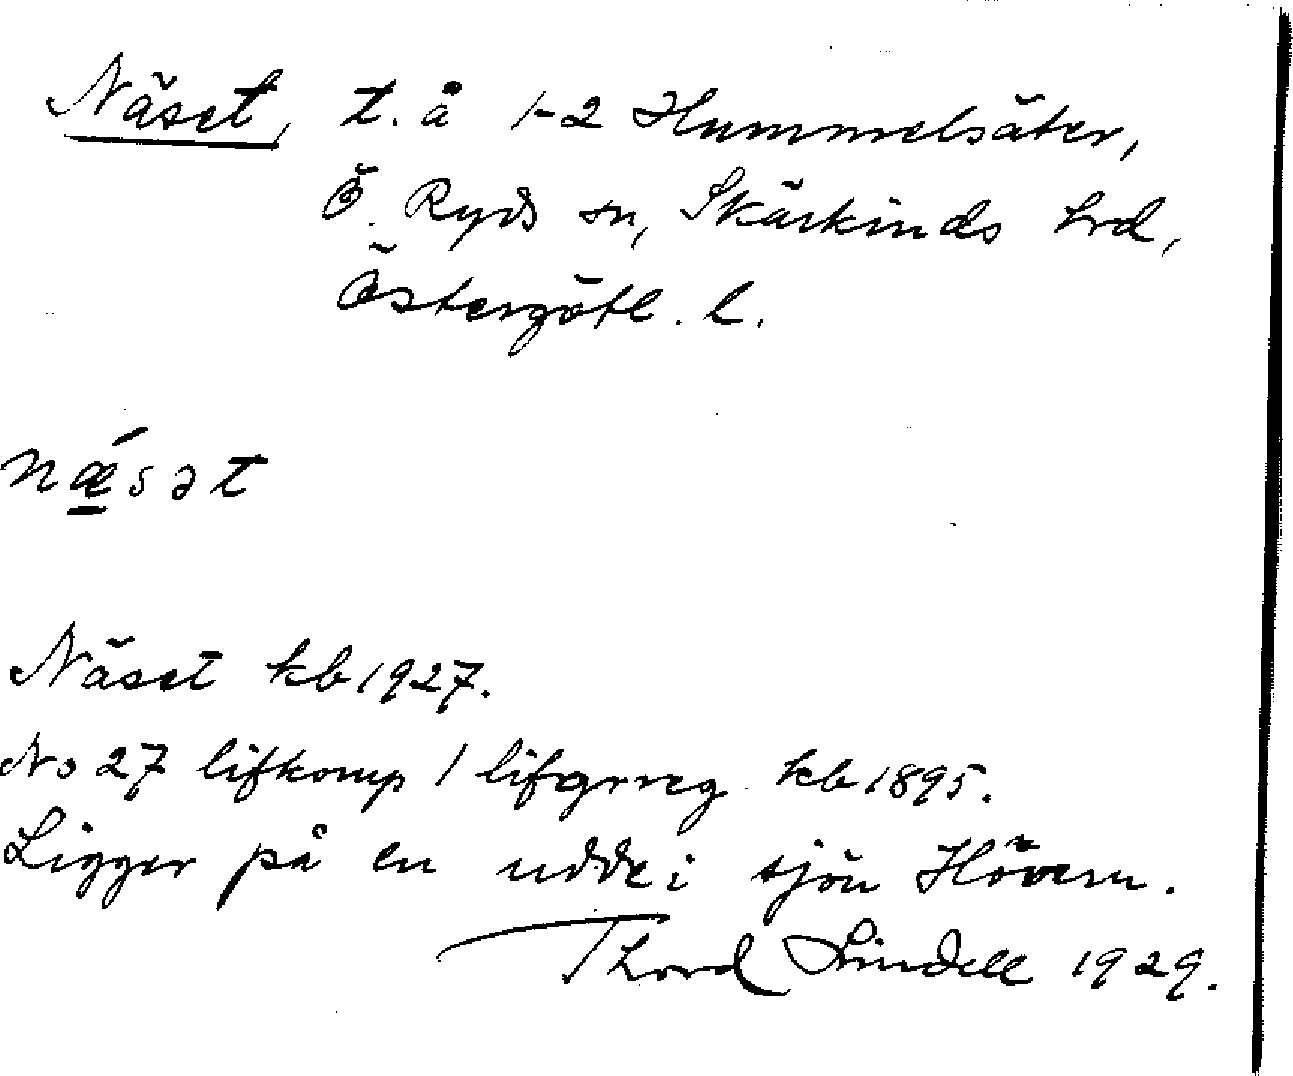 Näset, t. å 1-2 Hummelsäter,
Ö. Ryds sn, Skärkinds hrd,
Östergötl. l.
nǽ̲sət
Näset kb 1927.
No 27 lifkomp 1 lifgrreg kb 1895.
Ligger på en udde i sjön Hövern.
Thord Lindell 1929.